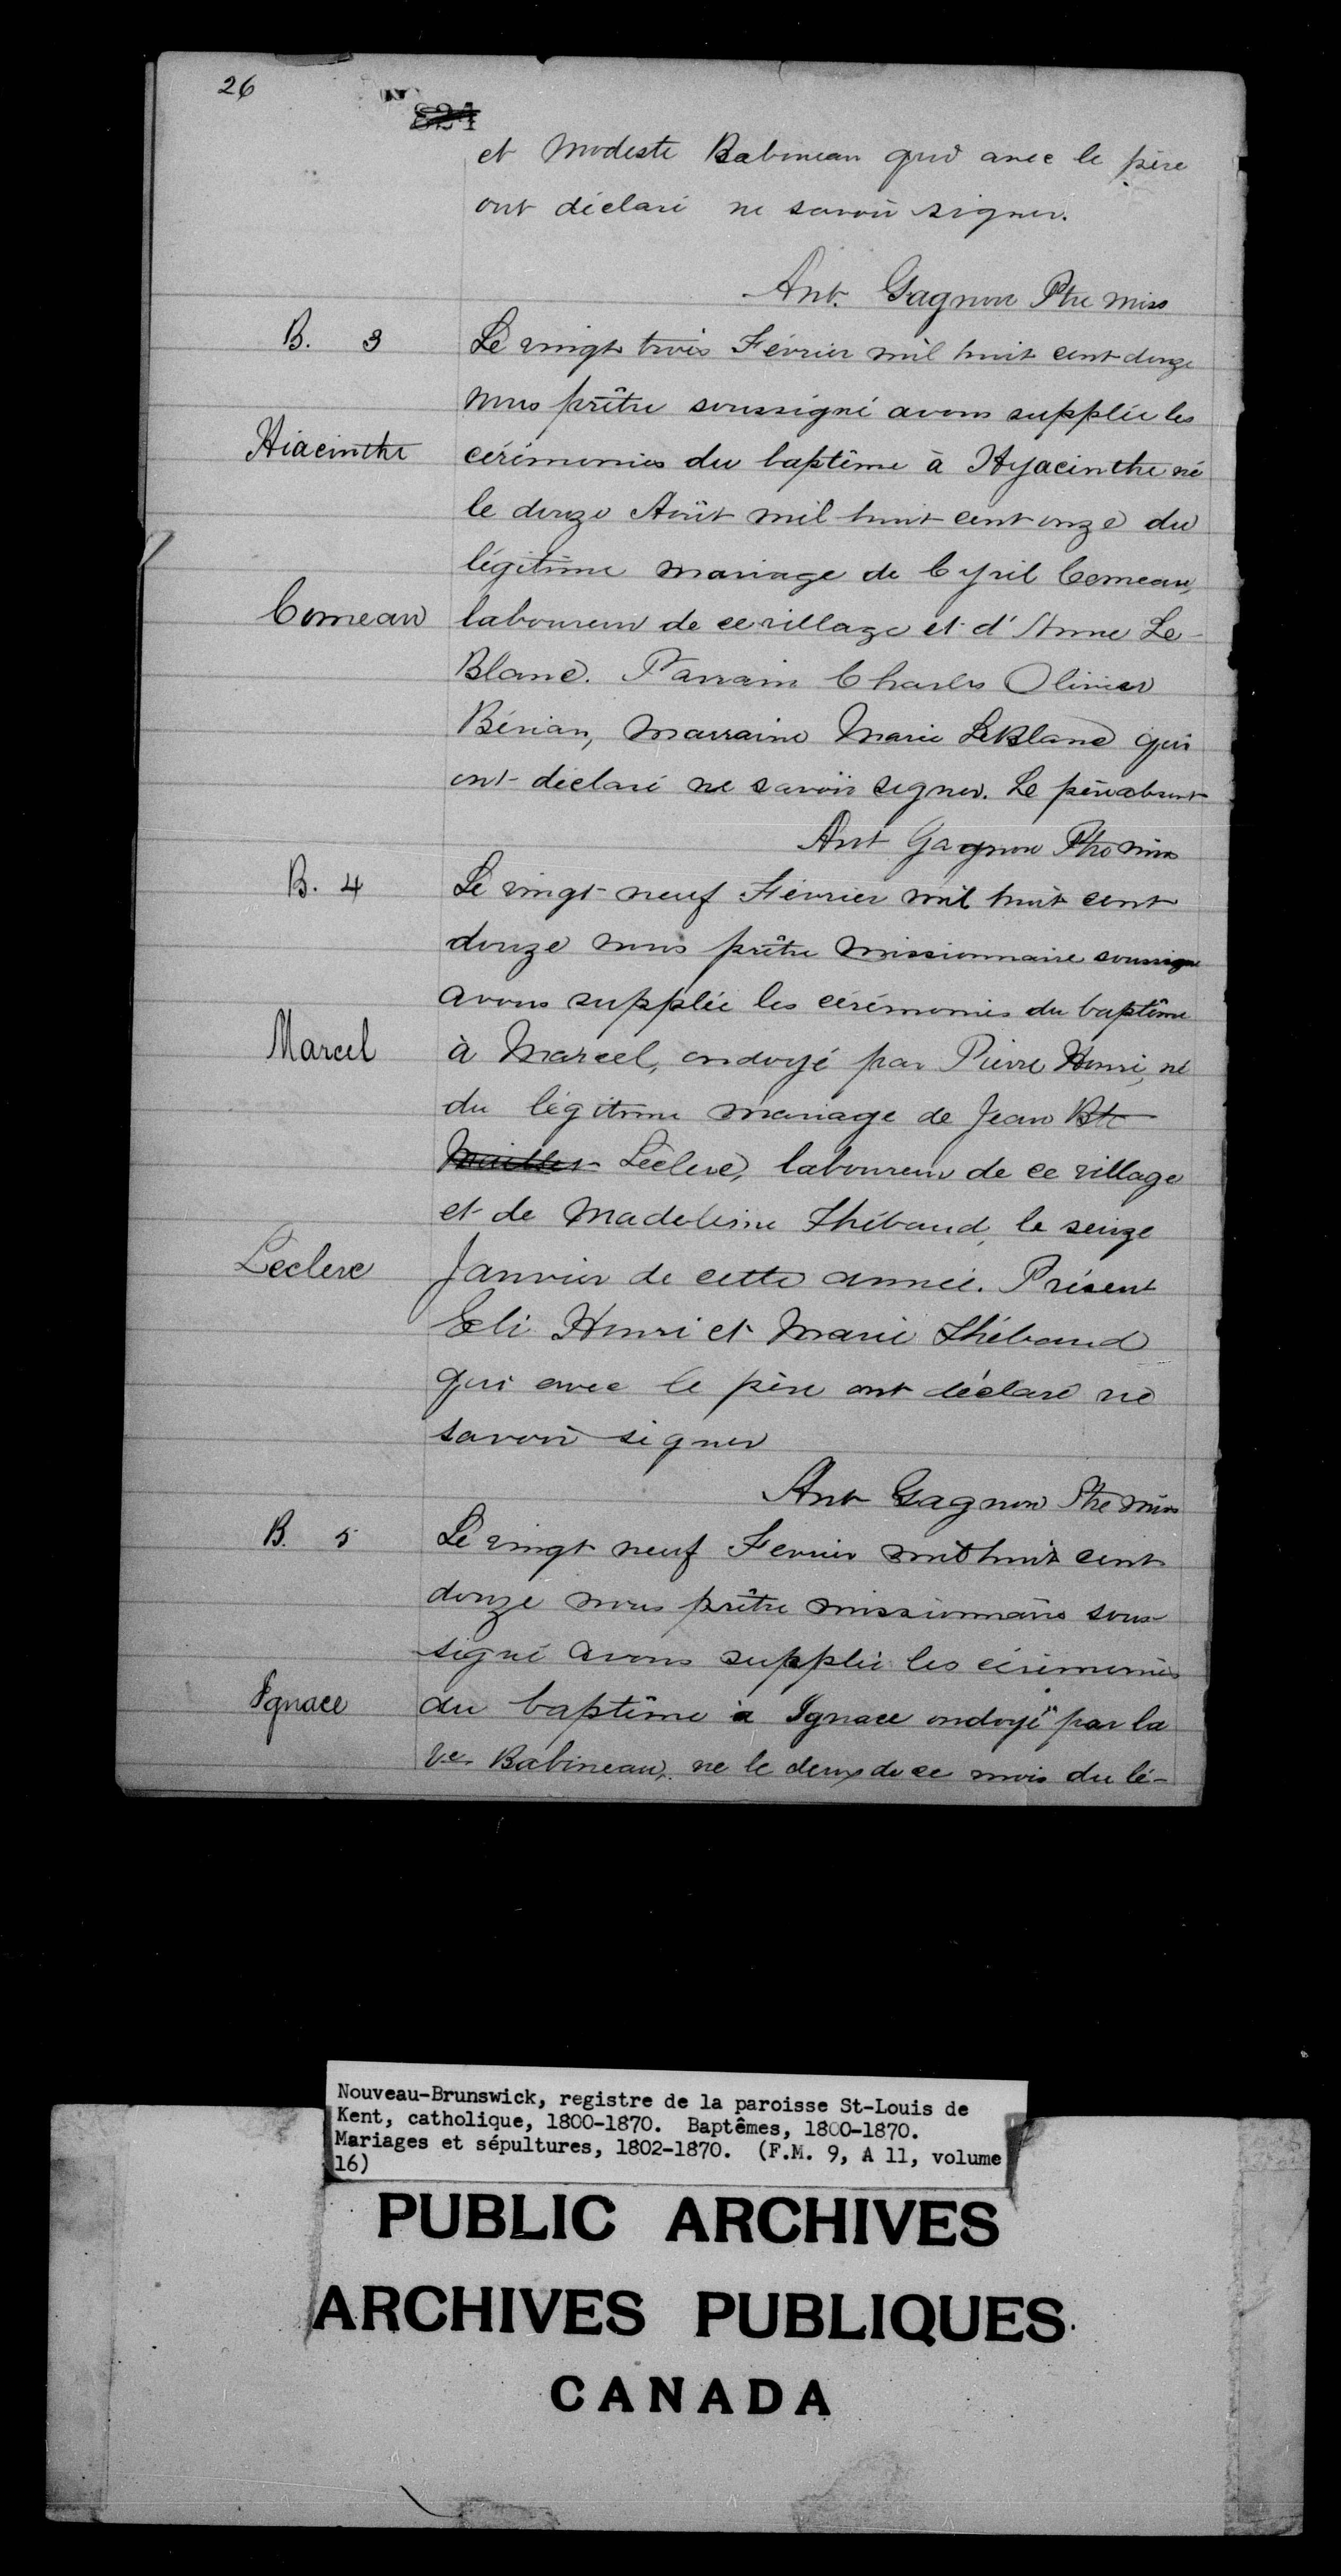 26
824
et Modeste Babineau qui avec le père
ont déclaré ne savoir signer.
Ant. Gagnon Ptre Miss
B. 3
Le vingt trois Février mil huit cent douze
nous prêtre soussigné avons supplée les
Hiacinthe
cérémonies du baptême à Hyacinthe né
le douze Août mil huit cent onze du
légitime mariage de Cyril Comeau,
Comeau
laboureur de ce village et d'Anne Le-
Blanc. Parrain Charles Olivier
Bériau, Marraine Marie LeBlanc qui
ont déclaré ne savoir signer. Le père absent
Ant Gagnon Ptre Miss
B. 4
Le vingt-neuf Février mil huit cent
douze nous prêtre missionnaire soussigné
avons supplée les cérémonies du baptême
Marcel
à Marcel, ondoyé par Pierre Henri, né
du légitime mariage de Jean Bte
Leclerc, laboureur de ce village
et de Madeleine Thébaud, le seize
Leclerc
Janvier de cette année. Présent
Eli Henri et Marie Thébaud
qui avec le père ont déclaré ne
savoir signer
Ant Gagnon Ptre Miss
B. 5
Le vingt neuf Fevrier mil huit cent
douze nous prêtre missionnaire sous-
signé avons supplée les cérémonies
Ignace
du baptême a Ignace ondoyé par la
Ve Babineau, ne le deux de ce mois du lé-
Nouveau-Brunswick, registre de la paroisse St-Louis de
Kent, catholique, 1800-1870. Baptêmes, 1800-1870.
Mariages et sépultures, 1802-1870. (F.M. 9, A 11, volume
16)
PUBLIC ARCHIVES
ARCHIVES PUBLIQUES
CANADA